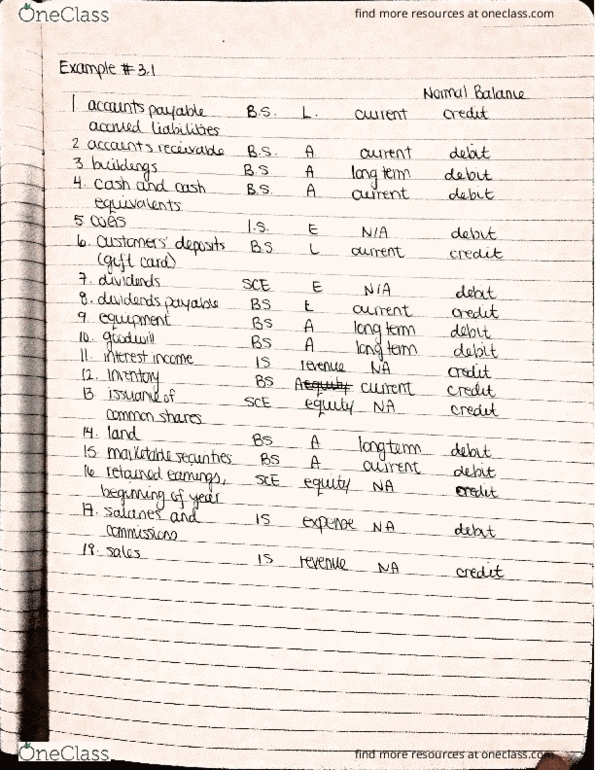 OneClass
find more resources at oneclass.com
Example # 3.1
Normal Balance
1 accounts payable B.S. L. current credit
accrued liabilities
2 accounts receivable B.S. A current debit
3 buildings B.S A long term debit
4. cash and cash B.S. A current debit
equivalents
5 COGS I.S. E N/A debit
6. customers' deposits B.S L current credit
(gift card)
7. dividends SCE E N/A debit
8. dividends payable BS E current credit
9. equipment BS A long term debit
10. goodwill BS A long term debit
11. interest income IS revenue NA credit
12. Inventory BS A equity current credit
13. issuance of SCE equity NA credit
common shares
14. land BS A longterm debit
15. marketable securities BS A current debit
16. retained earnings, SCE equity NA credit
beginning of year
17. salaries and IS expense NA debit
commissions
18. sales IS revenue NA credit
OneClass
find more resources at oneclass.com